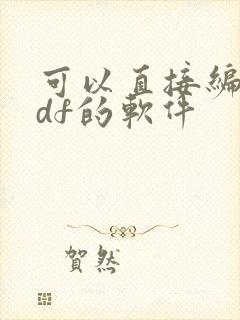 可以直接編
df的軟件
賀然